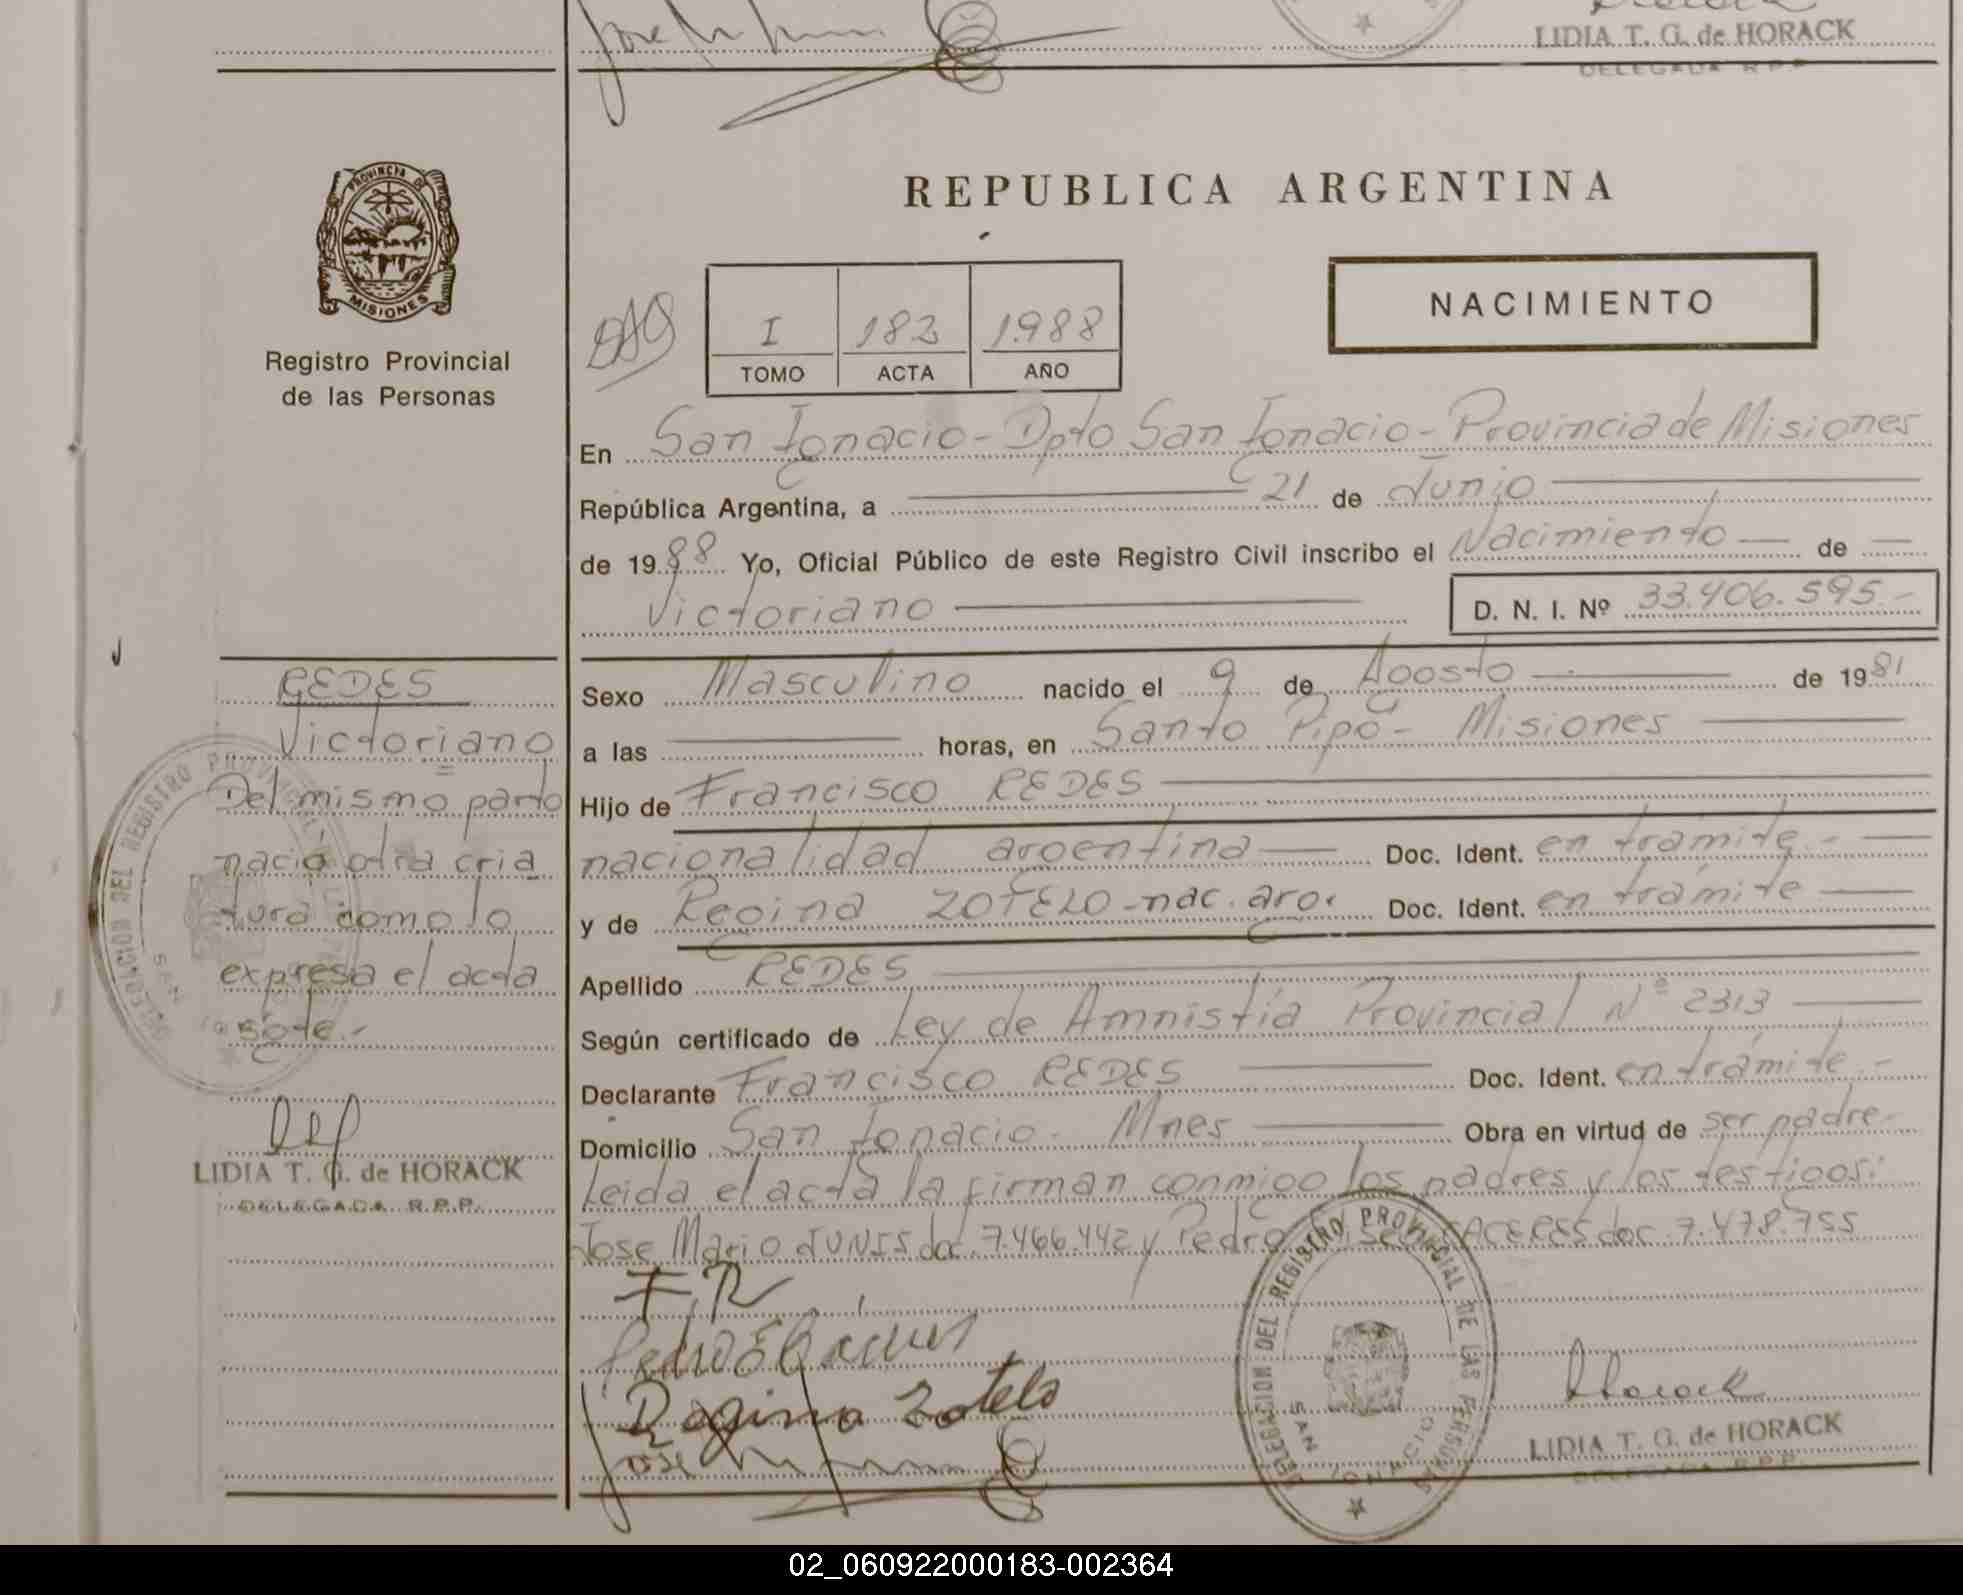 LIDIA T. G. de HORACK
DELEGADA R.P.P.
PROVINCIA DE
MISIONES
Registro Provincial
de las Personas
REPUBLICA ARGENTINA
NACIMIENTO
I 182 1.988
TOMO ACTA AÑO
En San Ignacio - Dpto San Ignacio - Provincia de Misiones
República Argentina, a 21 de Junio
de 1988 Yo, Oficial Público de este Registro Civil inscribo el Nacimiento de
Victoriano D. N. I. Nº 33.406.595.-
Sexo Masculino nacido el 9 de Agosto de 1981
a las horas, en Santo Pipó - Misiones
Hijo de Francisco REDES
nacionalidad argentina Doc. Ident. en trámite.-
y de Regina ZOTELO - nac. arg. Doc. Ident. en trámite
Apellido REDES
Según certificado de Ley de Amnistía Provincial Nº 2313
Declarante Francisco REDES Doc. Ident. en trámite.-
Domicilio San Ignacio - Mnes Obra en virtud de ser padre-
Leida el acta la firman conmigo los padres y los testigos:
Jose Mario doc. 7.466.442 y Pedro CACERES doc. 7.478.755
F.R
Pedro E Caceres
Regina Zotelo
José
Horack
LIDIA T. G. de HORACK
DELEGADA R.P.P.
DELEGACION DEL REGISTRO PROVINCIAL DE LAS PERSONAS
SAN IGNACIO
REDES
Victoriano
Del mismo parto
nació otra cria
tura como lo
expresa el acta
LIDIA T. G. de HORACK
DELEGADA R.P.P.
DELEGACION DEL REGISTRO PROVINCIAL
SAN
02_060922000183-002364